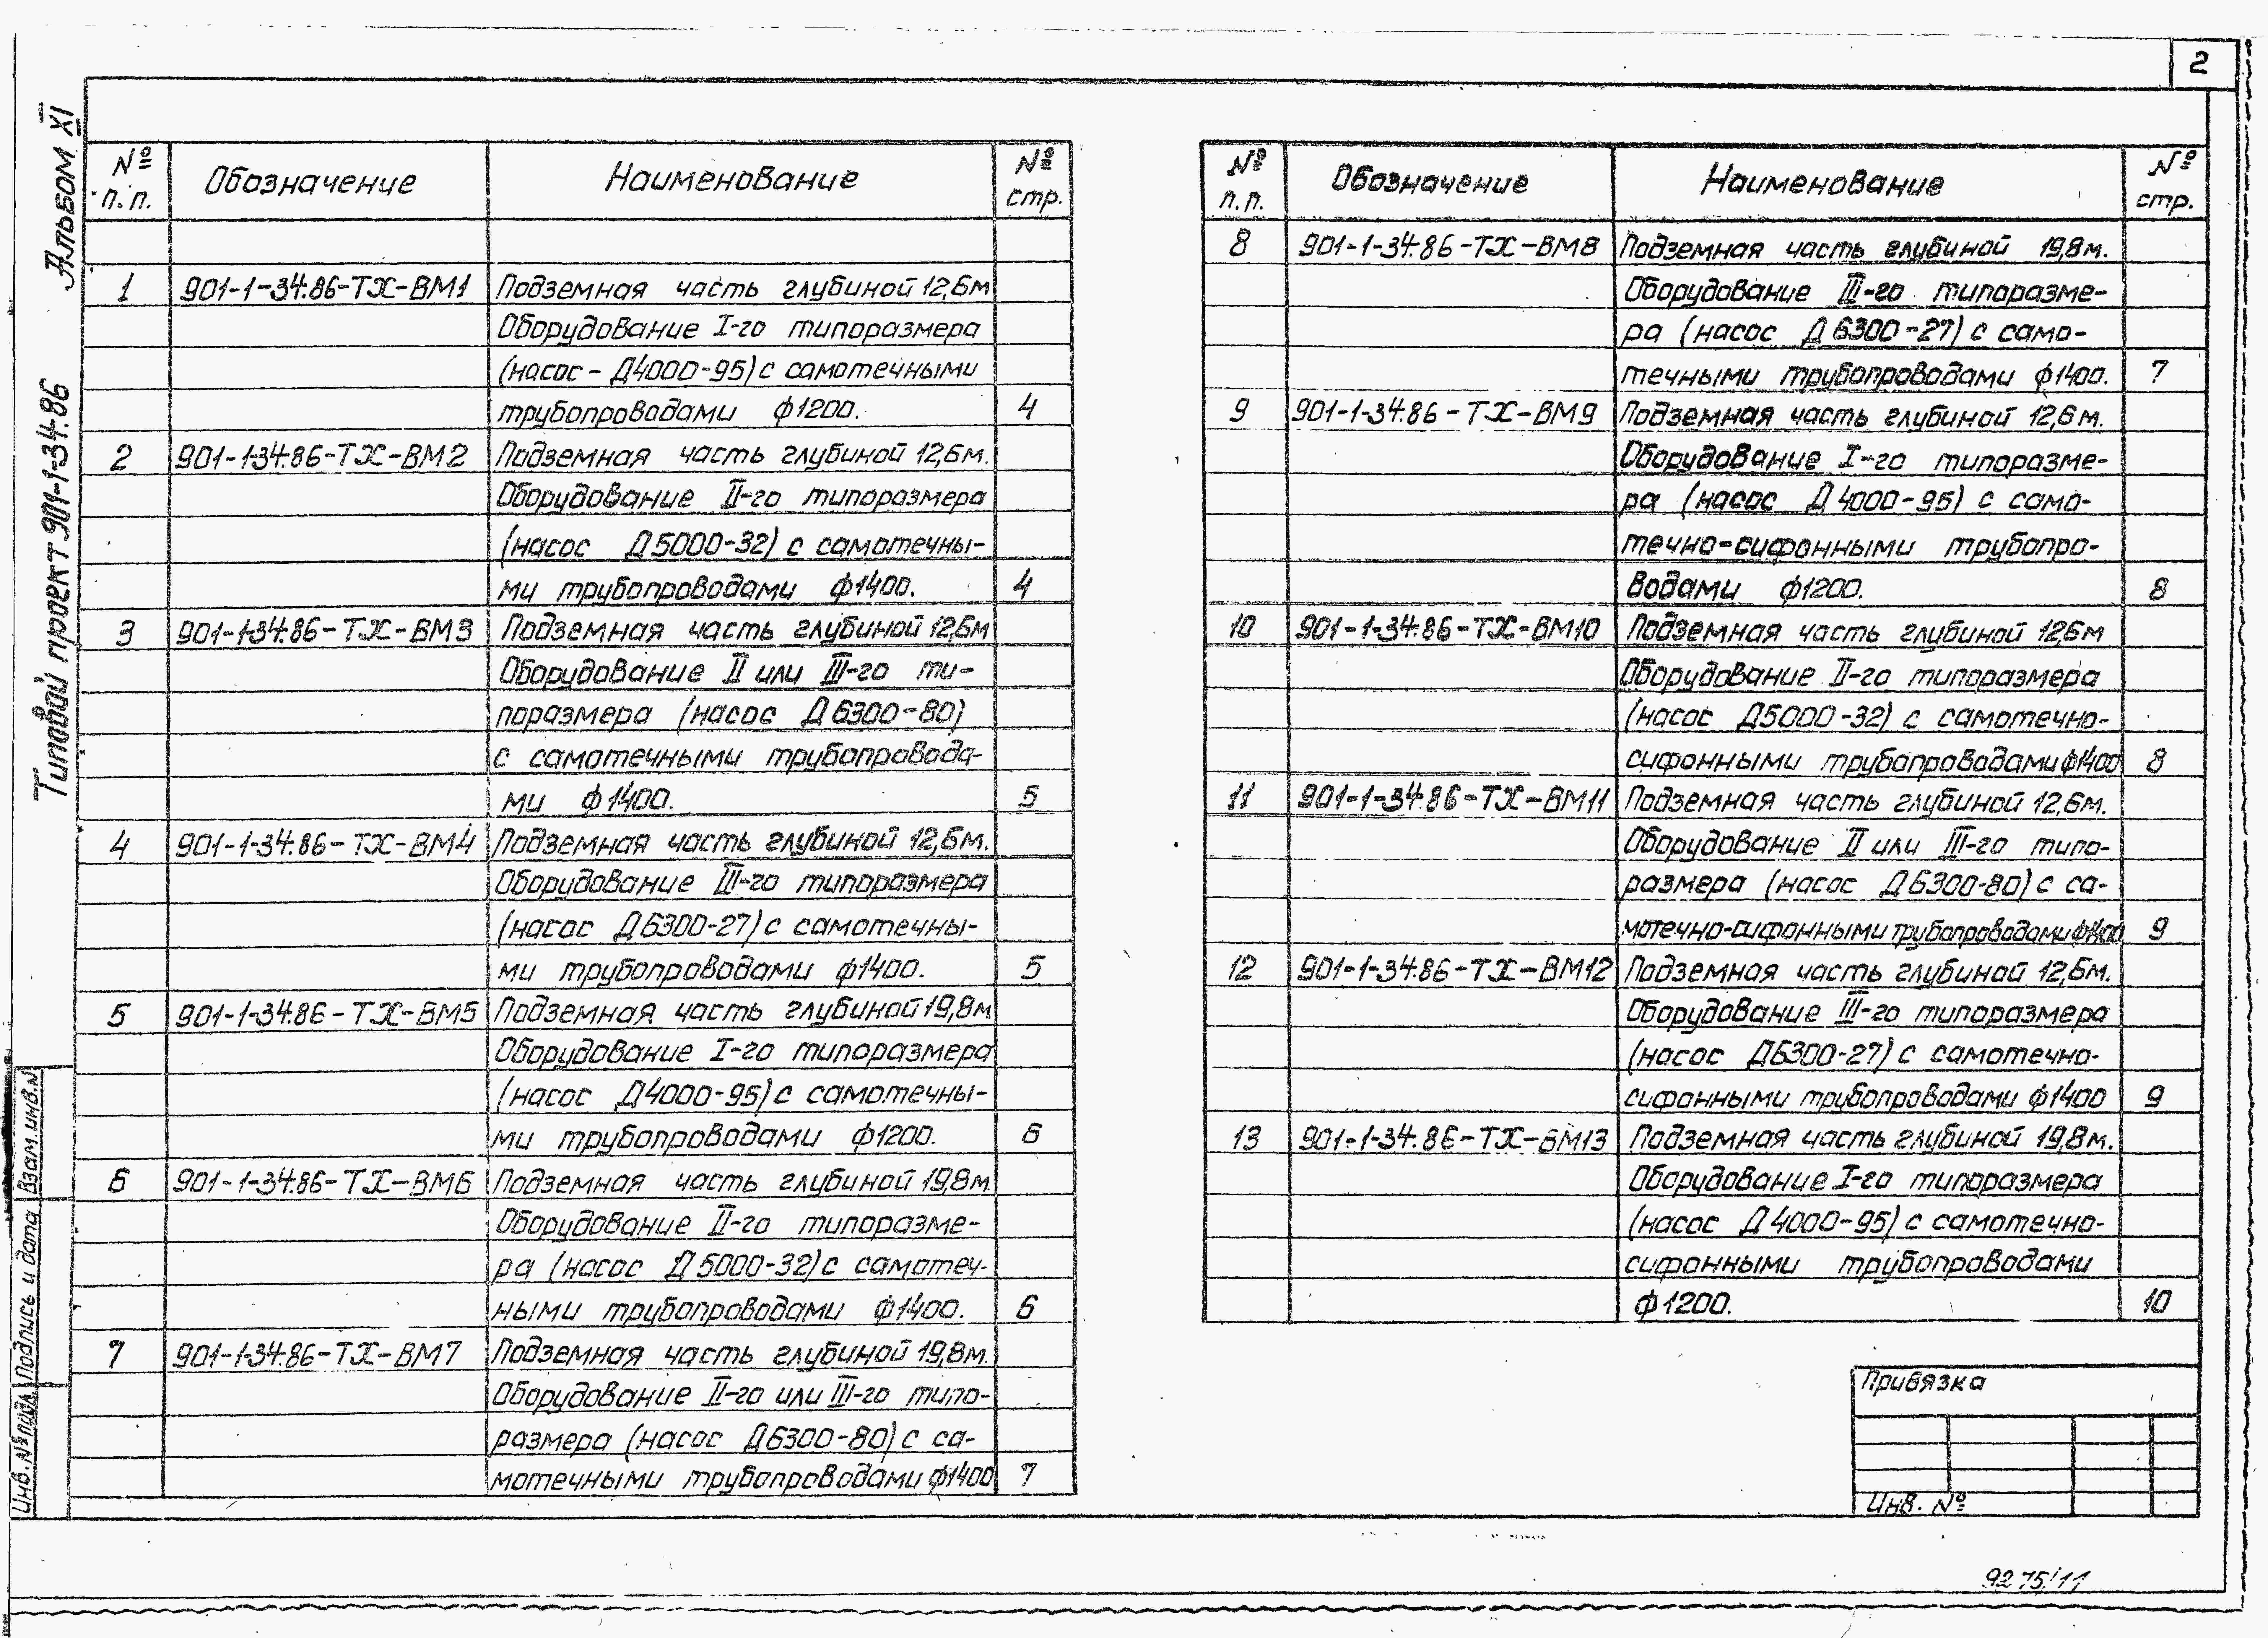 2
Альбом XI
Типовой проект 901-1-34.86
№ п.п. Обозначение Наименование № стр.
1 901-1-34.86-ТХ-ВМ1 Подземная часть глубиной 12,6м
Оборудование I-го типоразмера
(насос - Д4000-95) с самотечными
трубопроводами ф1200. 4
2 901-1-34.86-ТХ-ВМ2 Подземная часть глубиной 12,6м.
Оборудование II-го типоразмера
(насос Д5000-32) с самотечны-
ми трубопроводами ф1400. 4
3 901-1-34.86-ТХ-ВМ3 Подземная часть глубиной 12,6м
Оборудование II или III-го ти-
поразмера (насос Д6300-80)
с самотечными трубопровода-
ми ф1400. 5
4 901-1-34.86-ТХ-ВМ4 Подземная часть глубиной 12,6м.
Оборудование III-го типоразмера
(насос Д6300-27) с самотечны-
ми трубопроводами ф1400. 5
5 901-1-34.86-ТХ-ВМ5 Подземная часть глубиной 19,8м
Оборудование I-го типоразмера
(насос Д4000-95) с самотечны-
ми трубопроводами ф1200. 6
6 901-1-34.86-ТХ-ВМ6 Подземная часть глубиной 19,8м.
Оборудование II-го типоразме-
ра (насос Д5000-32) с самотеч-
ными трубопроводами ф1400. 6
7 901-1-34.86-ТХ-ВМ7 Подземная часть глубиной 19,8м.
Оборудование II-го или III-го типо-
размера (насос Д6300-80) с са-
мотечными трубопроводами ф1400 7
№ п.п. Обозначение Наименование № стр.
8 901-1-34.86-ТХ-ВМ8 Подземная часть глубиной 19,8м.
Оборудование III-го типоразме-
ра (насос Д6300-27) с само-
течными трубопроводами ф1400. 7
9 901-1-34.86-ТХ-ВМ9 Подземная часть глубиной 12,6м.
Оборудование I-го типоразме-
ра (насос Д4000-95) с само-
течно-сифонными трубопро-
водами ф1200. 8
10 901-1-34.86-ТХ-ВМ10 Подземная часть глубиной 12,6м
Оборудование II-го типоразмера
(насос Д5000-32) с самотечно-
сифонными трубопроводами ф1400 8
11 901-1-34.86-ТХ-ВМ11 Подземная часть глубиной 12,6м.
Оборудование II или III-го типо-
размера (насос Д6300-80) с са-
мотечно-сифонными трубопроводами ф1400 9
12 901-1-34.86-ТХ-ВМ12 Подземная часть глубиной 12,6м.
Оборудование III-го типоразмера
(насос Д6300-27) с самотечно-
сифонными трубопроводами ф1400 9
13 901-1-34.86-ТХ-ВМ13 Подземная часть глубиной 19,8м.
Оборудование I-го типоразмера
(насос Д4000-95) с самотечно-
сифонными трубопроводами
ф1200. 10
Привязка
Инв. №
Взам. инв. №
Подпись и дата
Инв. № подл.
9275/11